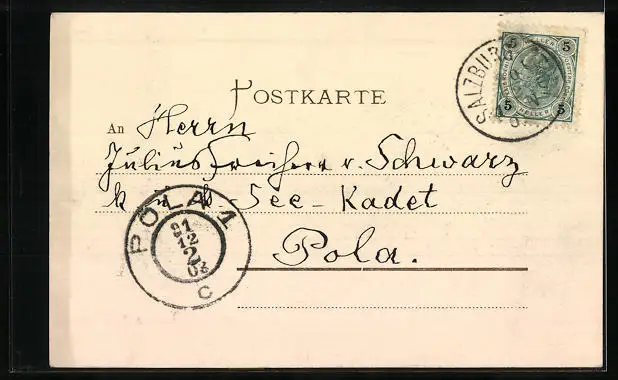 5 5
SALZBURG
5 5
HELLER
POSTKARTE
An Herrn
Julius Freiherr v. Schwarz
k u k - See - Kadet
POLA 1
Pola.
12
03
C